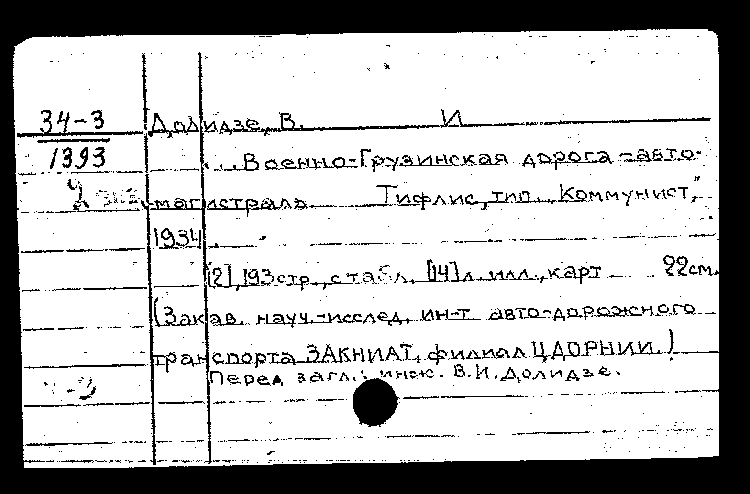 34-3 Долидзе, В. И
1393 ...Военно-Грузинская дорога-авто-
2 экз. магистраль. Тифлис, тип. „Коммунист",
1934.
[2], 193 стр., с табл. [14] л. илл., карт 22см.
(Закав. науч.-исслед. ин-т авто-дорожного
транспорта ЗАКНИАТ, филиал ЦДОРНИИ.)
Перед загл.: инж. В.И. Долидзе.